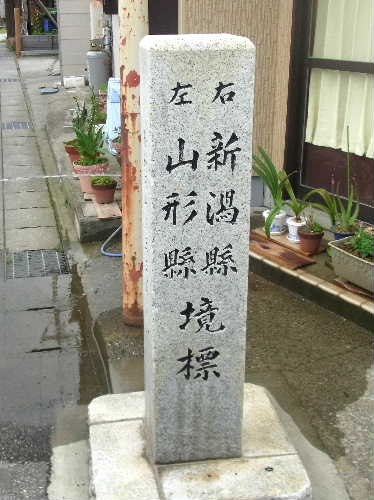 右 新潟縣
左 山形縣
境標